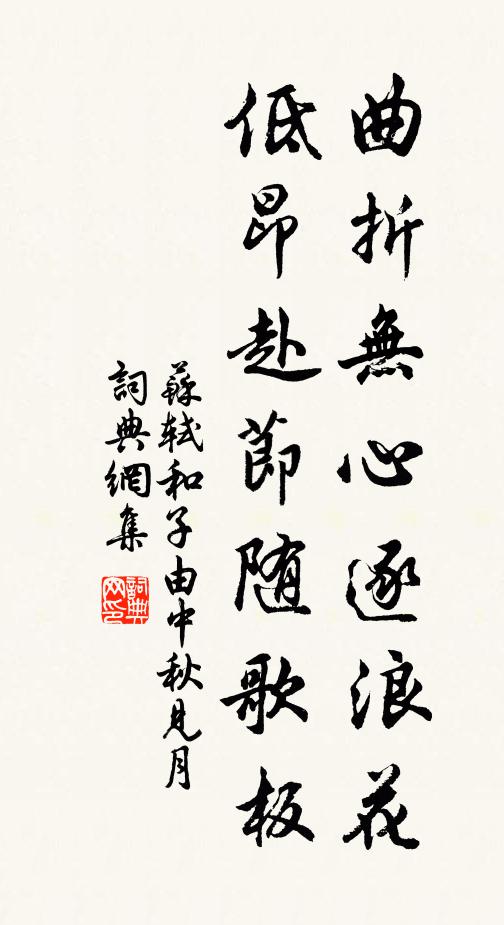 曲折無心逐浪花
低昂赴節隨歌板
蘇軾和子由中秋見月
詞典網集
詞典
網印